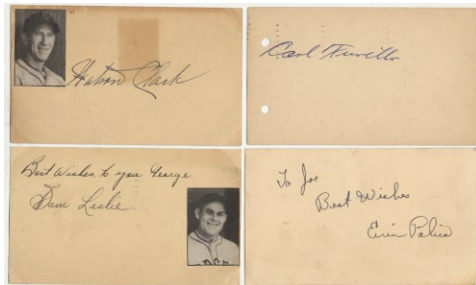 Watson Clark
Carl Furillo
Best Wishes to you George
Sam Leslie
To Joe
Best Wishes
Erv Palica